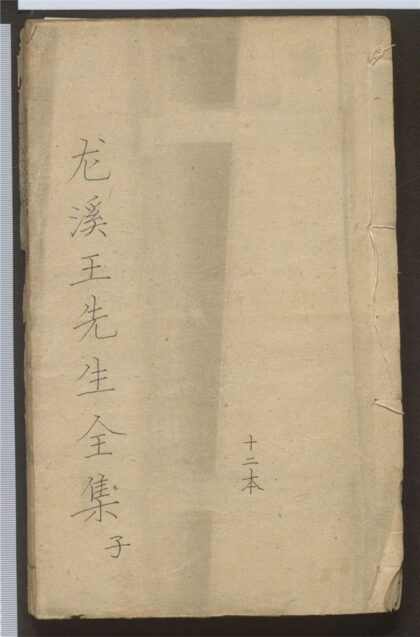 龙溪王先生全集子
十二本